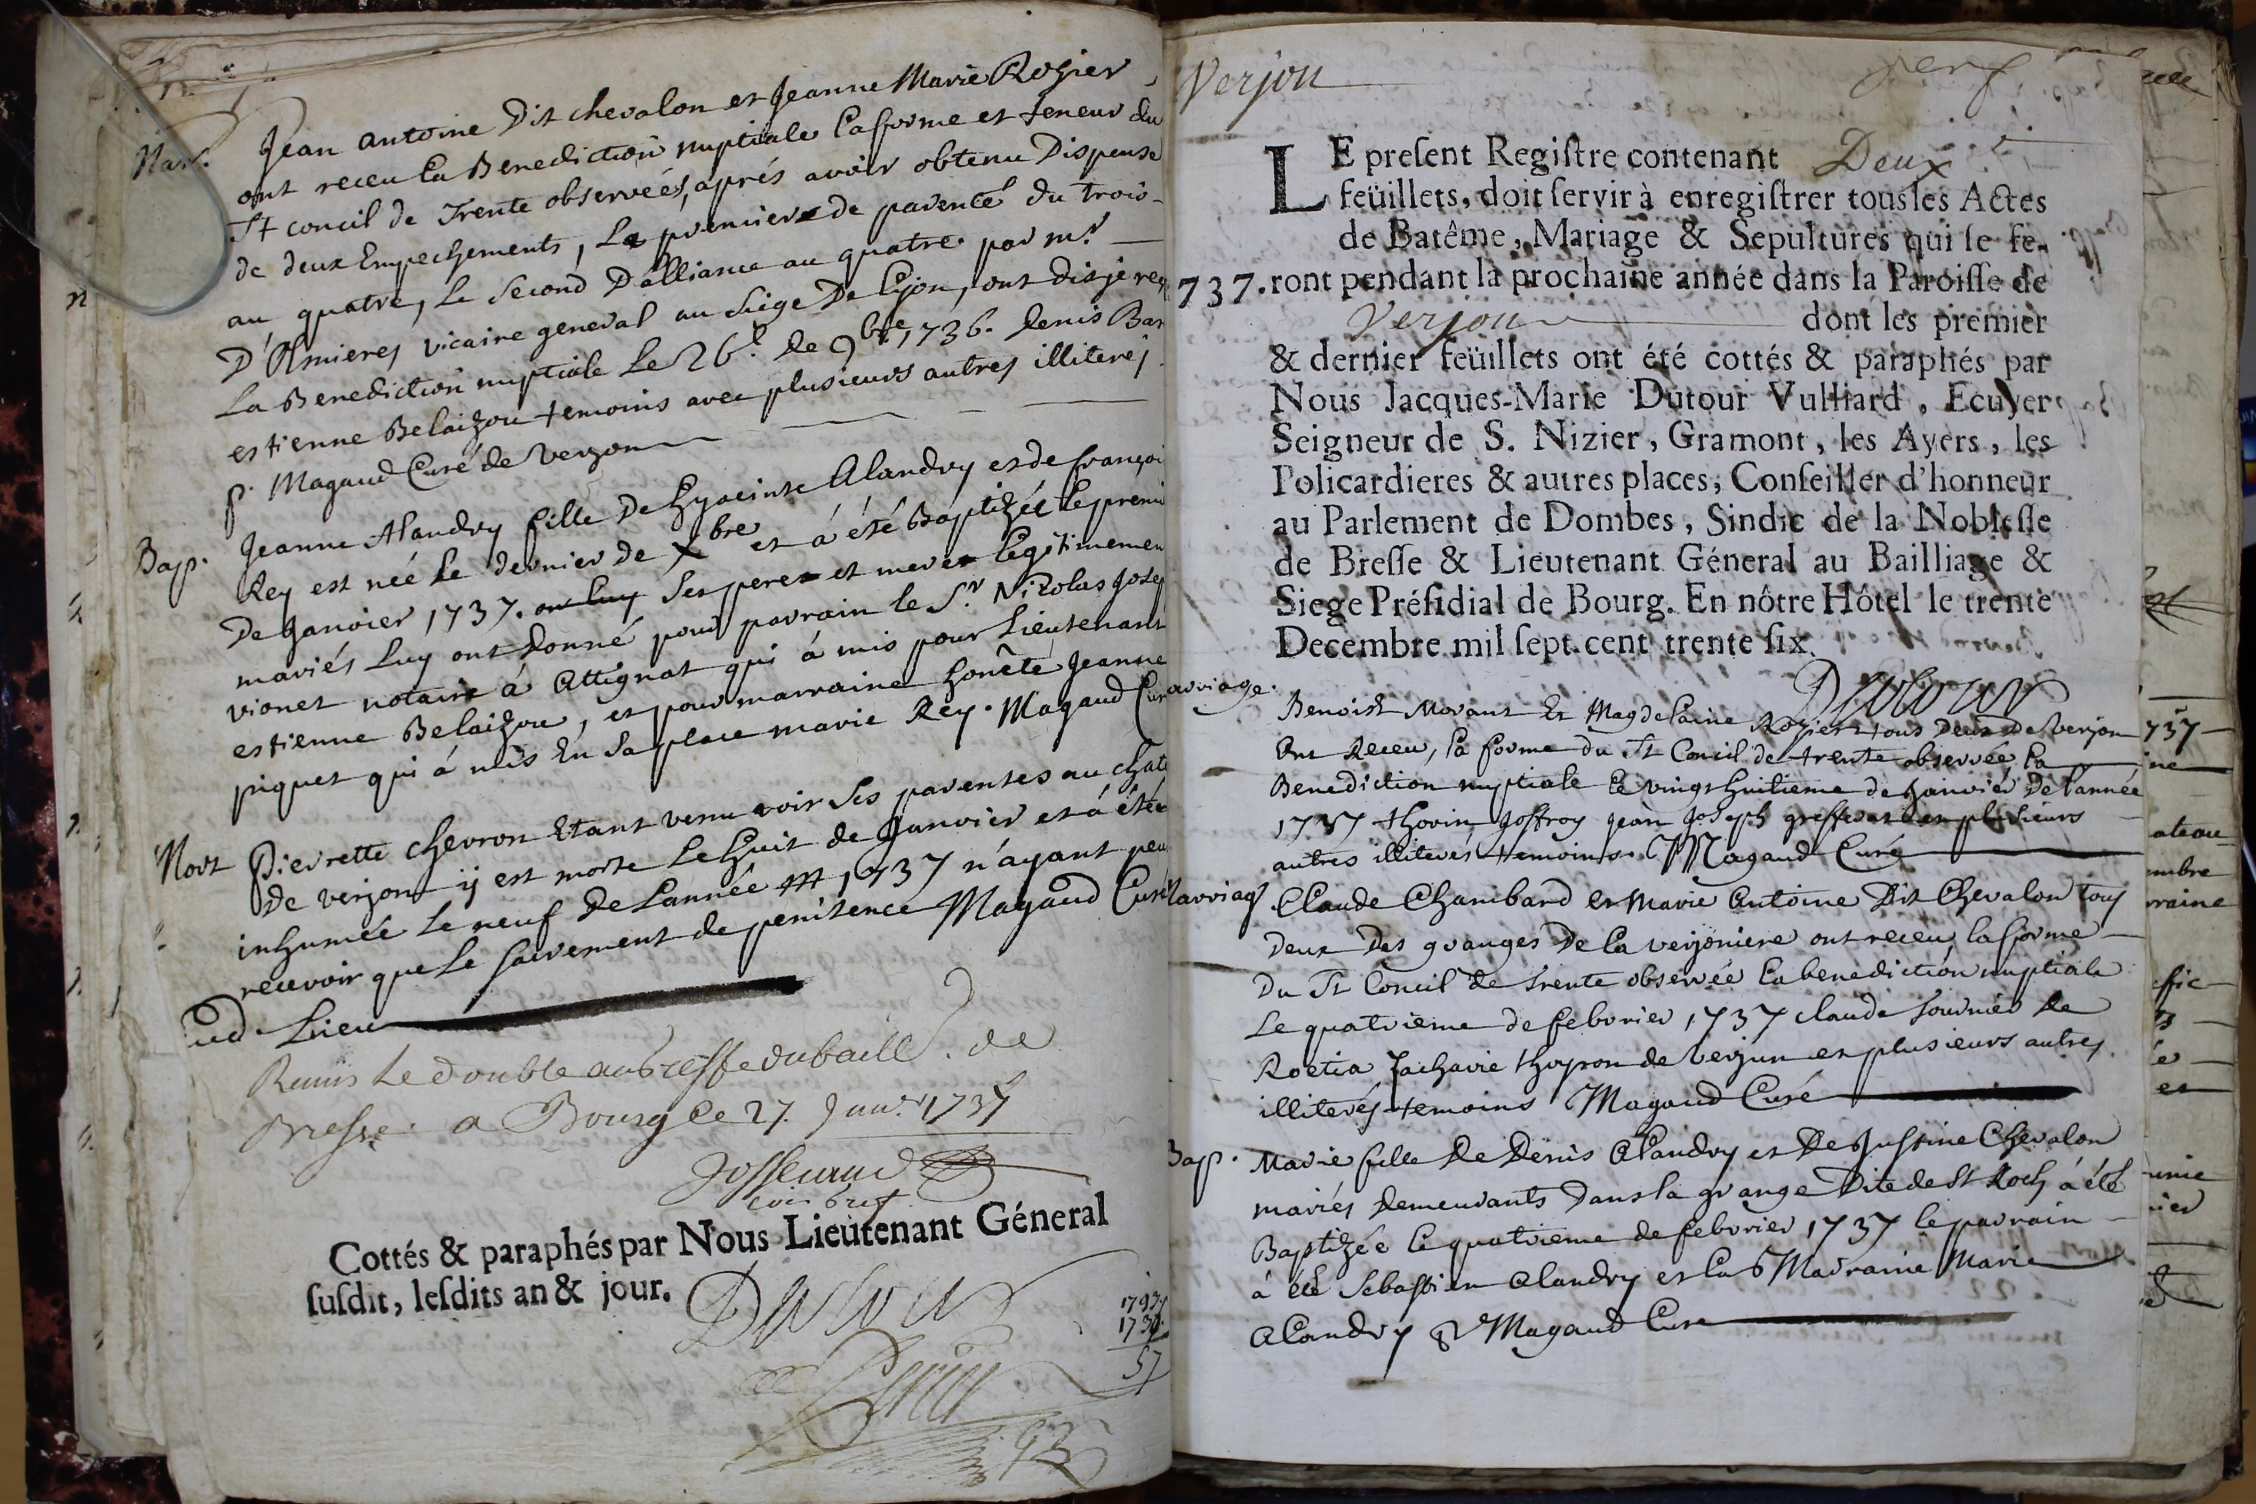 Mar. Jean antoine Dit chevalon et Jeanne Marie Rozier
ont receu la Benediction nuptiale la forme et teneur du
St concil de Trente observeés, aprés avoir obtenu Dispense
de deux Empechements, Le premier de parenté du trois
au quatre, Le Second Dalliance au quatre par mr
D'Olmieres vicaire general au Siege De Lyon, ont disje receu
La Benediction nuptiale Le 26e de 9bre 1736. denis Bar
estienne Belaizou temoins avec plusieurs autres illiterés
p. Magaud Curé de Verjon
Bap. Jeanne Alandry fille De hyacinte Alandry et de françoi
Rey est née Le dernier de Xbre et á été Baptizée le premi
De Janvier 1737. ont luy Ses pere et mere legitimemen
mariés Luy ont donné pour parrain le Sr Nicolas Josep
vionet notaire á Attignat qui á mis pour Lieutenant
estienne Belaizou, et pour marraine honête Jeanne
piquet qui á mis En Sa place marie Rey. Magaud Curé
Mort Pierrette chevron Etant venu voir Ses parentes au chate
de verjon ij est morte Le huit de Janvier et á été
inhumée Le neuf de L'année 1737 n'ayant peu
recevoir que Le sacrement de penitence Magaud Curé
ud. Lieu
Remis Le double au Greffe du baill. de
Bresse. a Bourg ce 27. Janv. 1737
Cottés & paraphés par Nous Lieutenant Géneral
susdit, lesdits an & jour.
Dutour
1737
173
57
Verjon
LE present Registre contenant Deux
feüillets, doit servir à enregistrer tous les Actes
de Batême, Mariage & Sepultures qui se fe-
737. ront pendant la prochaine année dans la Paroisse de
Verjon dont les premier
& dernier feüillets ont été cottés & paraphés par
Nous Jacques-Marie Dutour Vulliard, Ecuyer
Seigneur de S. Nizier, Gramont, les Ayers, les
Policardieres & autres places, Conseiller d'honneur
au Parlement de Dombes, Sindic de la Noblesse
de Bresse & Lieutenant Géneral au Bailliage &
Siege Présidial de Bourg. En nôtre Hôtel le trente
Decembre mil sept cent trente six.
Dutour
arriage. Benoist Morant Et Magdelaine Rozier tous Deux de Verjon
Ont Receu, la forme du St Concil de trente observée la
Benediction nuptiale le vingt huitieme de Janvier De l'année
1737 thovin Joffroy Jean Joseph greffe et plusieurs
autres illiterés temoins. Magaud Curé
Marriage Claude Chambard et Marie Antoine Dit Chevalon tous
Deux Des granges De la verjoniere ont receu la forme
Du St Concil de trente observée la benediction nuptiale
Le quatrieme de febvrier 1737 claude fournier de
Roetia Zacharie thoyron de Verjun et plusieurs autres
illiterés temoins Magaud Curé
Bap. Marie fille De Denis Alandry et De Justine Chevalon
mariés demeurants Dans la grange Dite de St Roch á été
Baptizée le quatrieme de febvrier 1737 le parrain
á été Sebastien Alandry et la Marraine Marie
Alandry Magaud Curé
737
ateau
mbre
rraine